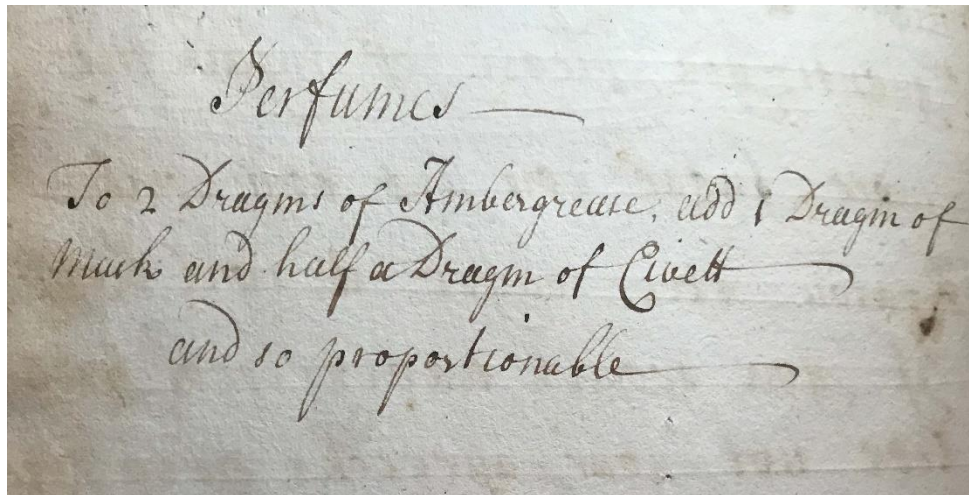 Perfumes
To 2 Dragms of Ambergrease, add 1 Dragm of
Musk and half a Dragm of Civett
and so proportionable